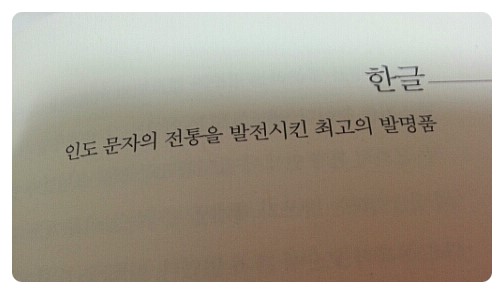 한글
인도 문자의 전통을 발전시킨 최고의 발명품